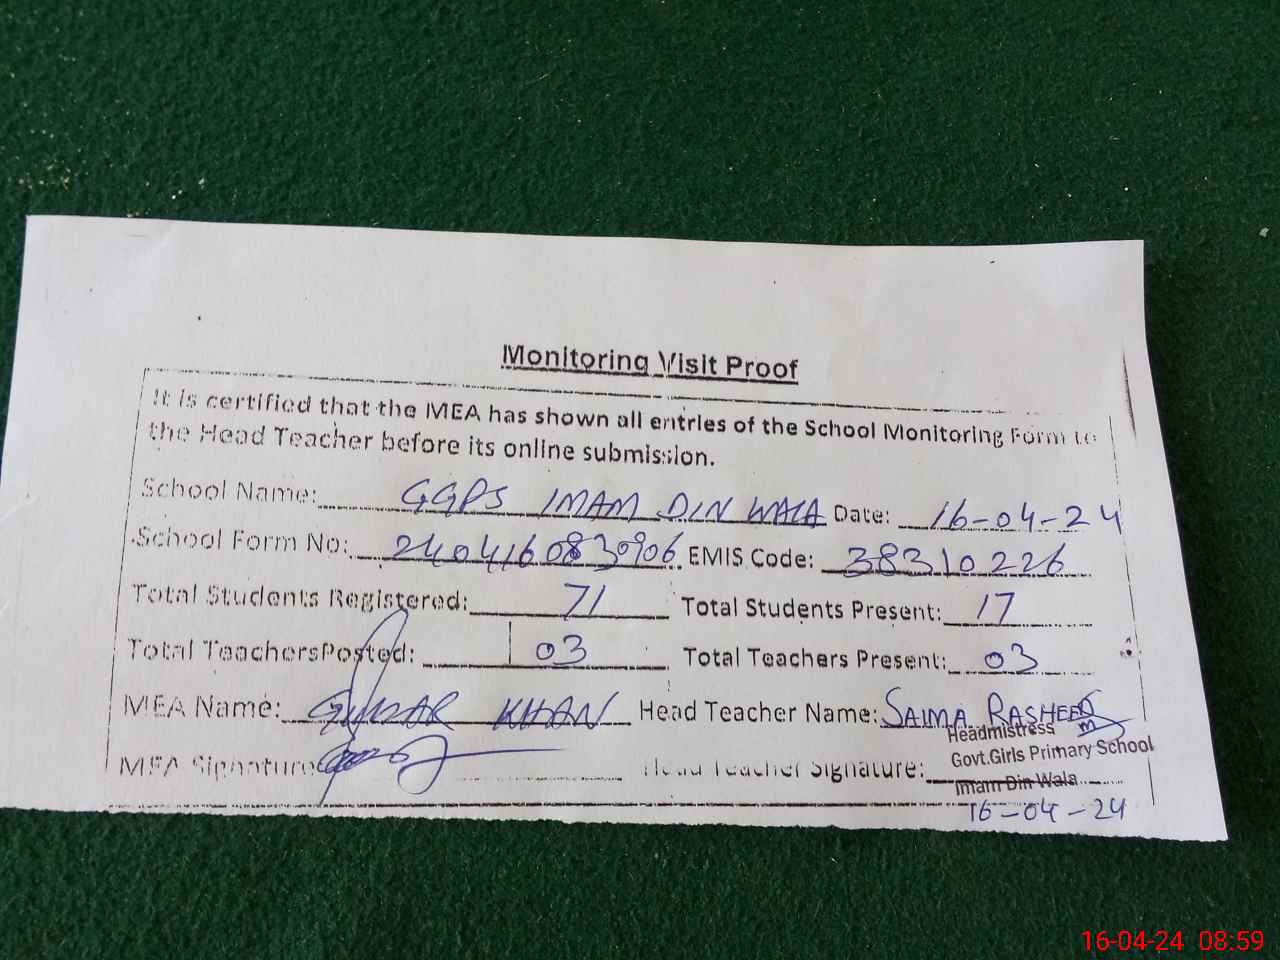 Monitoring Visit Proof
It is certified that the MEA has shown all entries of the School Monitoring Form to
the Head Teacher before its online submission.
School Name: GGPS IMAM DIN WALA Date: 16-04-24
School Form No: 2404160830906 EMIS Code: 38310226
Total Students Registered: 71 Total Students Present: 17
Total Teachers Posted: 03 Total Teachers Present: 03
MEA Name: KHAN Head Teacher Name: SAIMA RASHEED
Headmistress
Govt.Girls Primary School
MEA Signature Head Teacher Signature:
Imam Din Wala
16-04-24
16-04-24 08:59